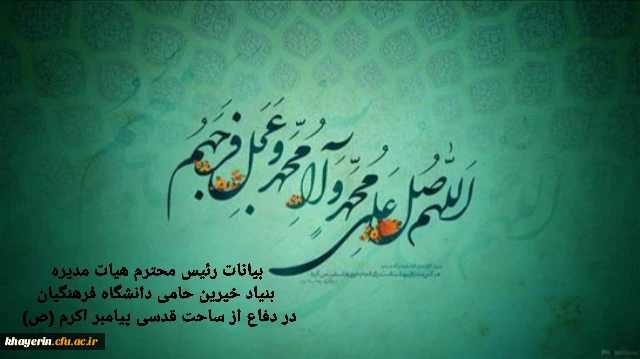 اللّهم صل علی محمد وآل محمد وعجل فرجهم
بیانات رئیس محترم هیات مدیره
بنیاد خیرین حامی دانشگاه فرهنگیان
در دفاع از ساحت قدسی پیامبر اکرم (ص)
khayerin.cfu.ac.ir